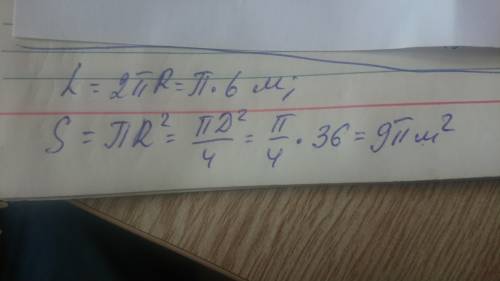 L = 2πR = π · 6 м;
S = πR² = πD²/4 = π/4 · 36 = 9π м²